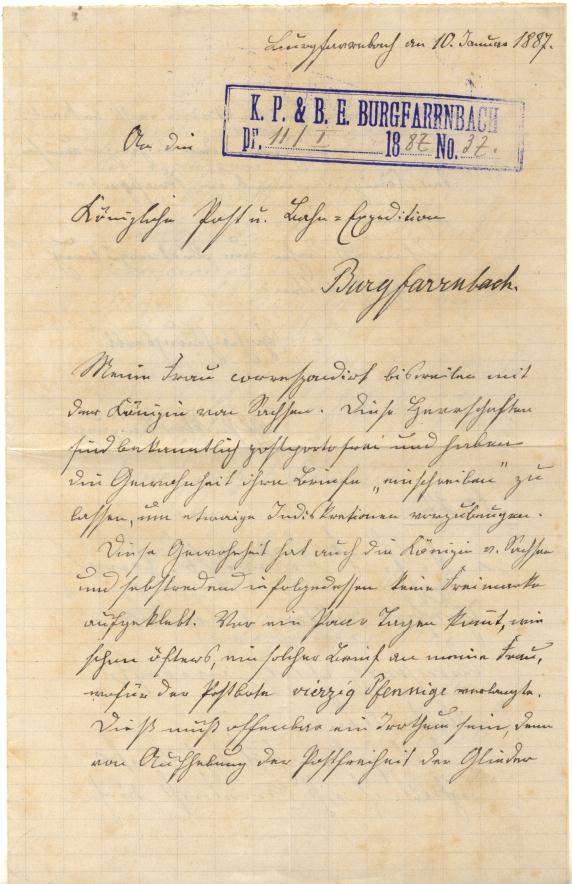 Burgfarrnbach am 10. Januar 1887.
K. P. & B. E. BURGFARRNBACH
pr. 11/I 1887 No. 37.
An die
Königliche Post u. Bahn-Expedition
Burgfarrnbach.
Meine Frau correspondirt bisweilen mit
der Königin von Sachsen. Diese Herrschaften
sind bekanntlich postportofrei und haben
die Gewohnheit ihre Briefe „einschreiben" zu
lassen, um etwaige Indiskretionen vorzubeugen.
Diese Gewohnheit hat auch die Königin v. Sachsen
und selbstredend infolgedessen keine Freimarke
aufgeklebt. Vor ein Paar Tagen kam̅t, wie
schon öfters, ein solcher Brief an meine Frau,
wofür der Postbote vierzig Pfennige verlangte.
Dieß muß offenbar ein Irrthum sein, denn
von Aufhebung der Postfreiheit der Glieder